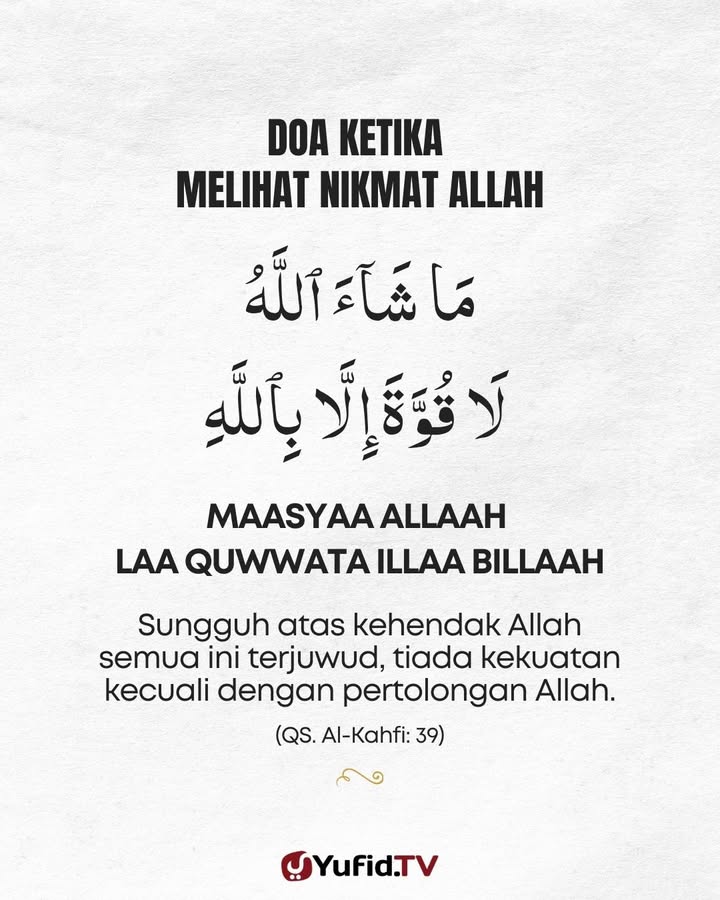 DOA KETIKA
MELIHAT NIKMAT ALLAH
مَا شَآءَ ٱللَّهُ
لَا قُوَّةَ إِلَّا بِٱللَّهِ
MAASYAA ALLAAH
LAA QUWWATA ILLAA BILLAAH
Sungguh atas kehendak Allah
semua ini terjuwud, tiada kekuatan
kecuali dengan pertolongan Allah.
(QS. Al-Kahfi: 39)
Yufid.TV